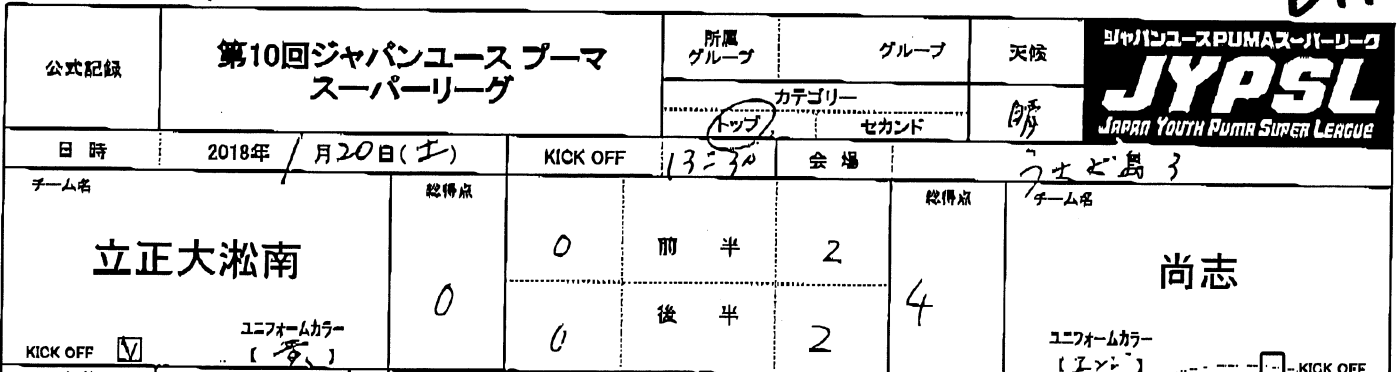 公式記録
第10回ジャパンユース プーマ
スーパーリーグ
所属
グループ
グループ
カテゴリー
トップ
セカンド
天候
晴
ジャパンユースPUMAスーパーリーグ
JYPSL
JAPAN YOUTH PUMA SUPER LEAGUE
日時 2018年 1月20日(土) KICK OFF 13:30 会場
チーム名
立正大淞南
KICK OFF
ユニフォームカラー
総得点
0
0 前半 2
0 後半 2
総得点
4
チーム名
尚志
ユニフォームカラー
KICK OFF